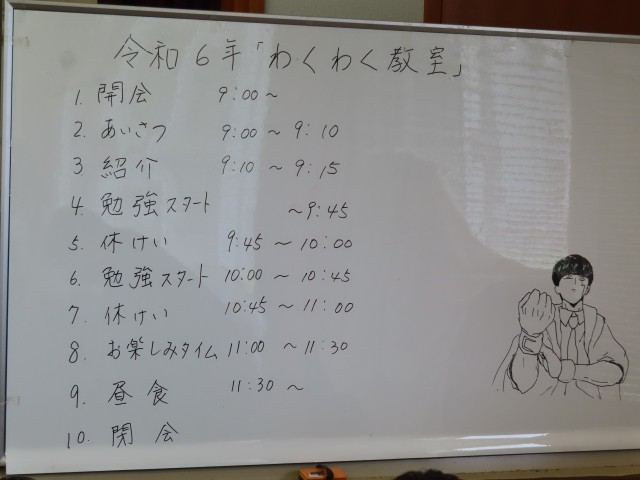 令和6年「わくわく教室」
1. 開会 9:00～
2. あいさつ 9:00～9:10
3 紹介 9:10～9:15
4. 勉強スタート ～9:45
5. 休けい 9:45～10:00
6. 勉強スタート 10:00～10:45
7. 休けい 10:45～11:00
8. お楽しみタイム 11:00～11:30
9. 昼食 11:30～
10. 閉会